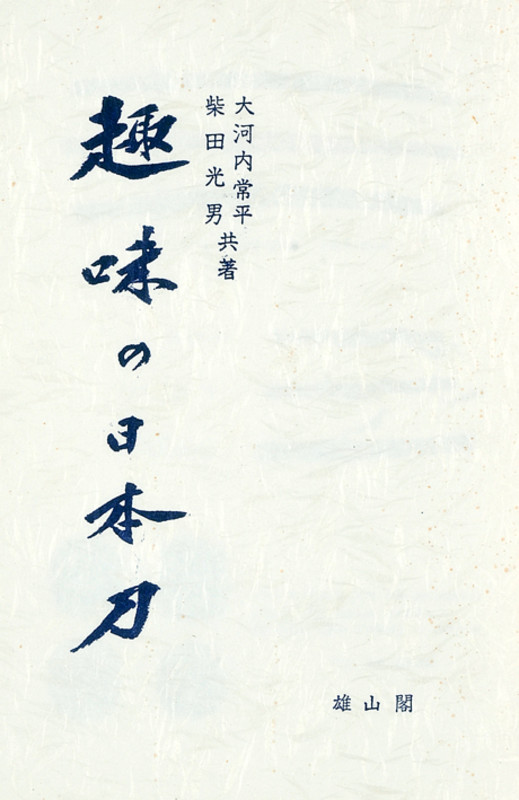 大河内常平
柴田光男
共著
趣味の日本刀
雄山閣